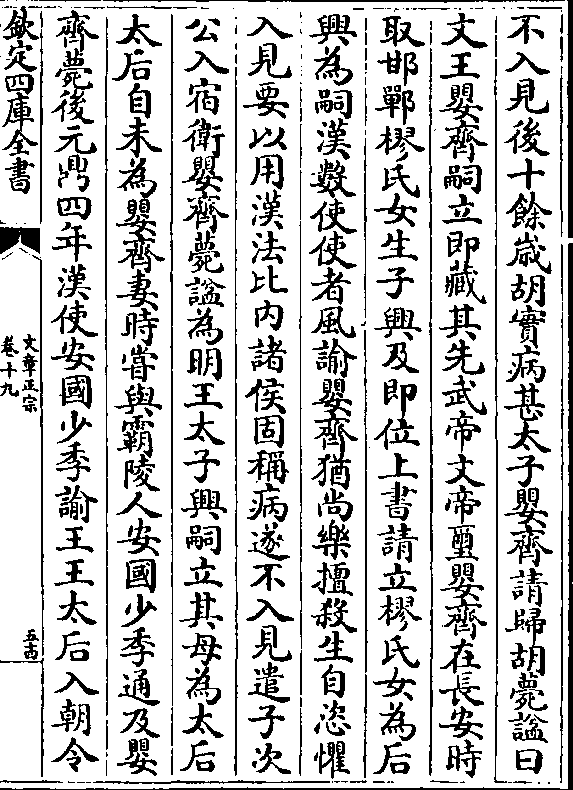 不入見後十餘歳胡實病甚太子嬰齊請歸胡薨諡曰
文王嬰齊嗣立即藏其先武帝文帝璽嬰齊在長安時
取邯鄲樛氏女生子興及即位上書請立樛氏女為后
興為嗣漢數使使者風諭嬰齊猶尚樂擅殺生自恣懼
入見要以用漢法比内諸侯固稱病遂不入見遣子次
公入宿衛嬰齊薨諡為明王太子興嗣立其母為太后
太后自未為嬰齊妻時嘗與霸陵人安國少季通及嬰
齊薨後元鼎四年漢使安國少季諭王王太后入朝令
欽定四庫全書
文章正宗
卷十九
五十四